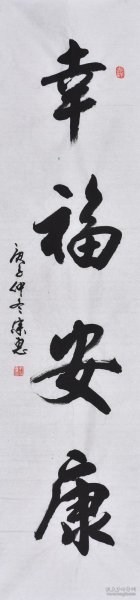 幸福安康
庚子仲冬